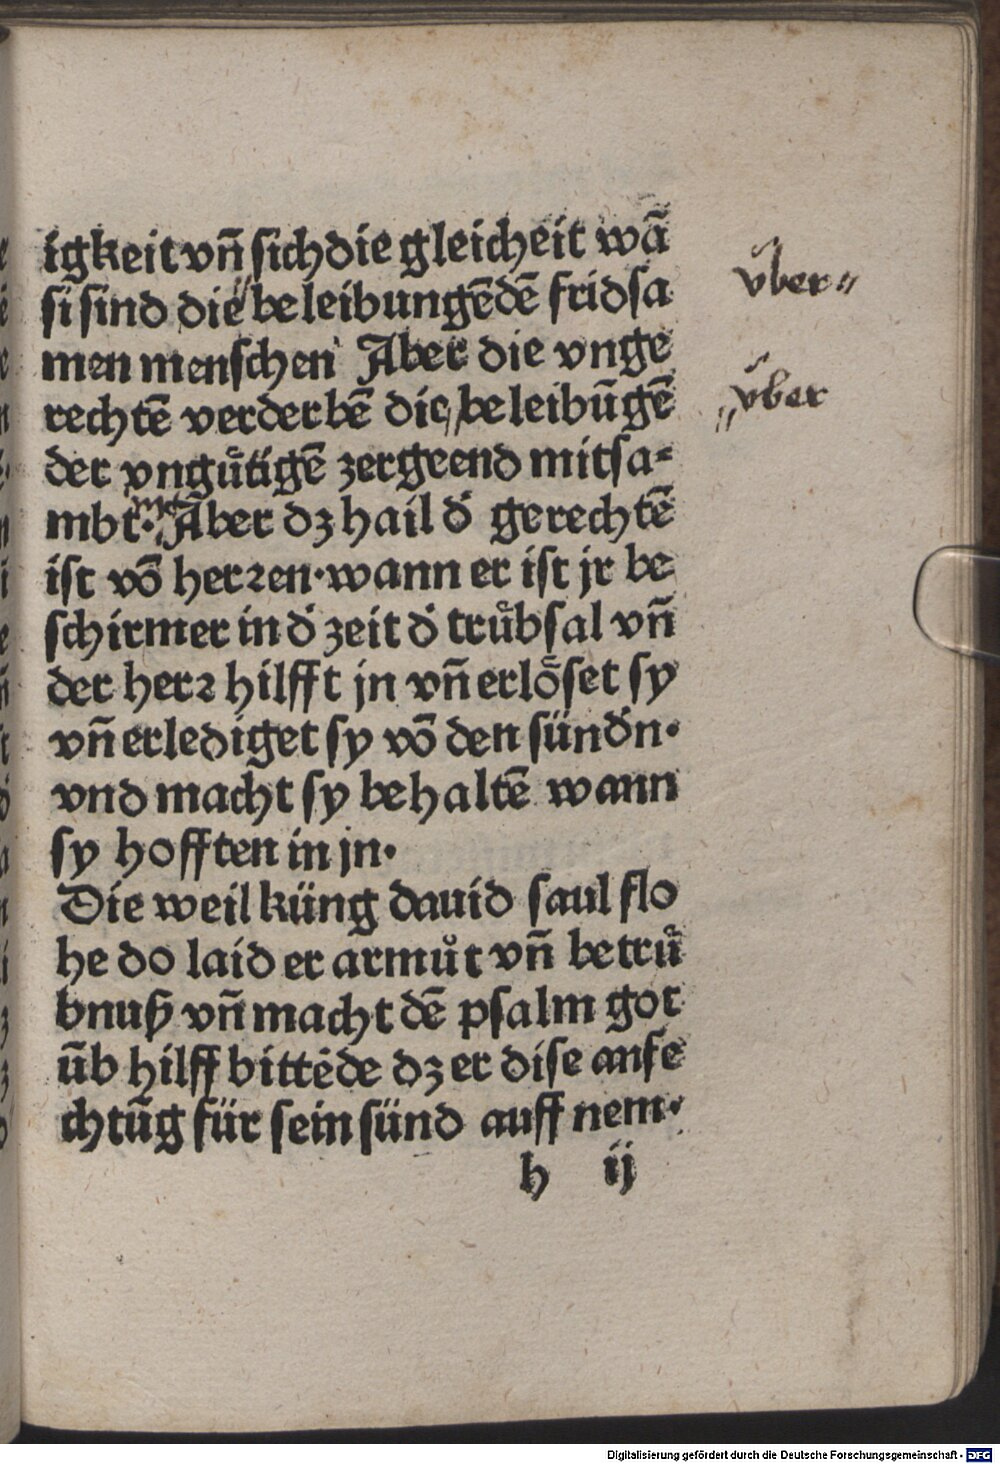 igkeit vñ sich die gleicheit wã
si sind die beleibungẽdẽ fridsa
men menschen Aber die vnge
rechtẽ verderbẽ die beleibũgẽ
der vngůtigẽ zergeend mitsa⸗
mbt. Aber dz hail d̓ gerechtẽ
ist võ herꝛen·wann er ist jr be
schirmer in d̓ zeit d̓ trůbsal vñ
der herꝛ hilfft jn vñ erlo̊set sy
vñ erlediget sy võ den sündn̓·
vnd macht sy behaltẽ wann
sy hofften in jn·
Die weil küng dauid saul flo
he do laid er armůt vñ betrů
bnuß vñ macht dẽ psalm got
ũb hilff bittẽde dz er dise anfe
chtũg für sein sünd auff nem·
h ij
v̈ber〃
〃v̈ber
Digitalisierung gefördert durch die Deutsche Forschungsgemeinschaft - DFG